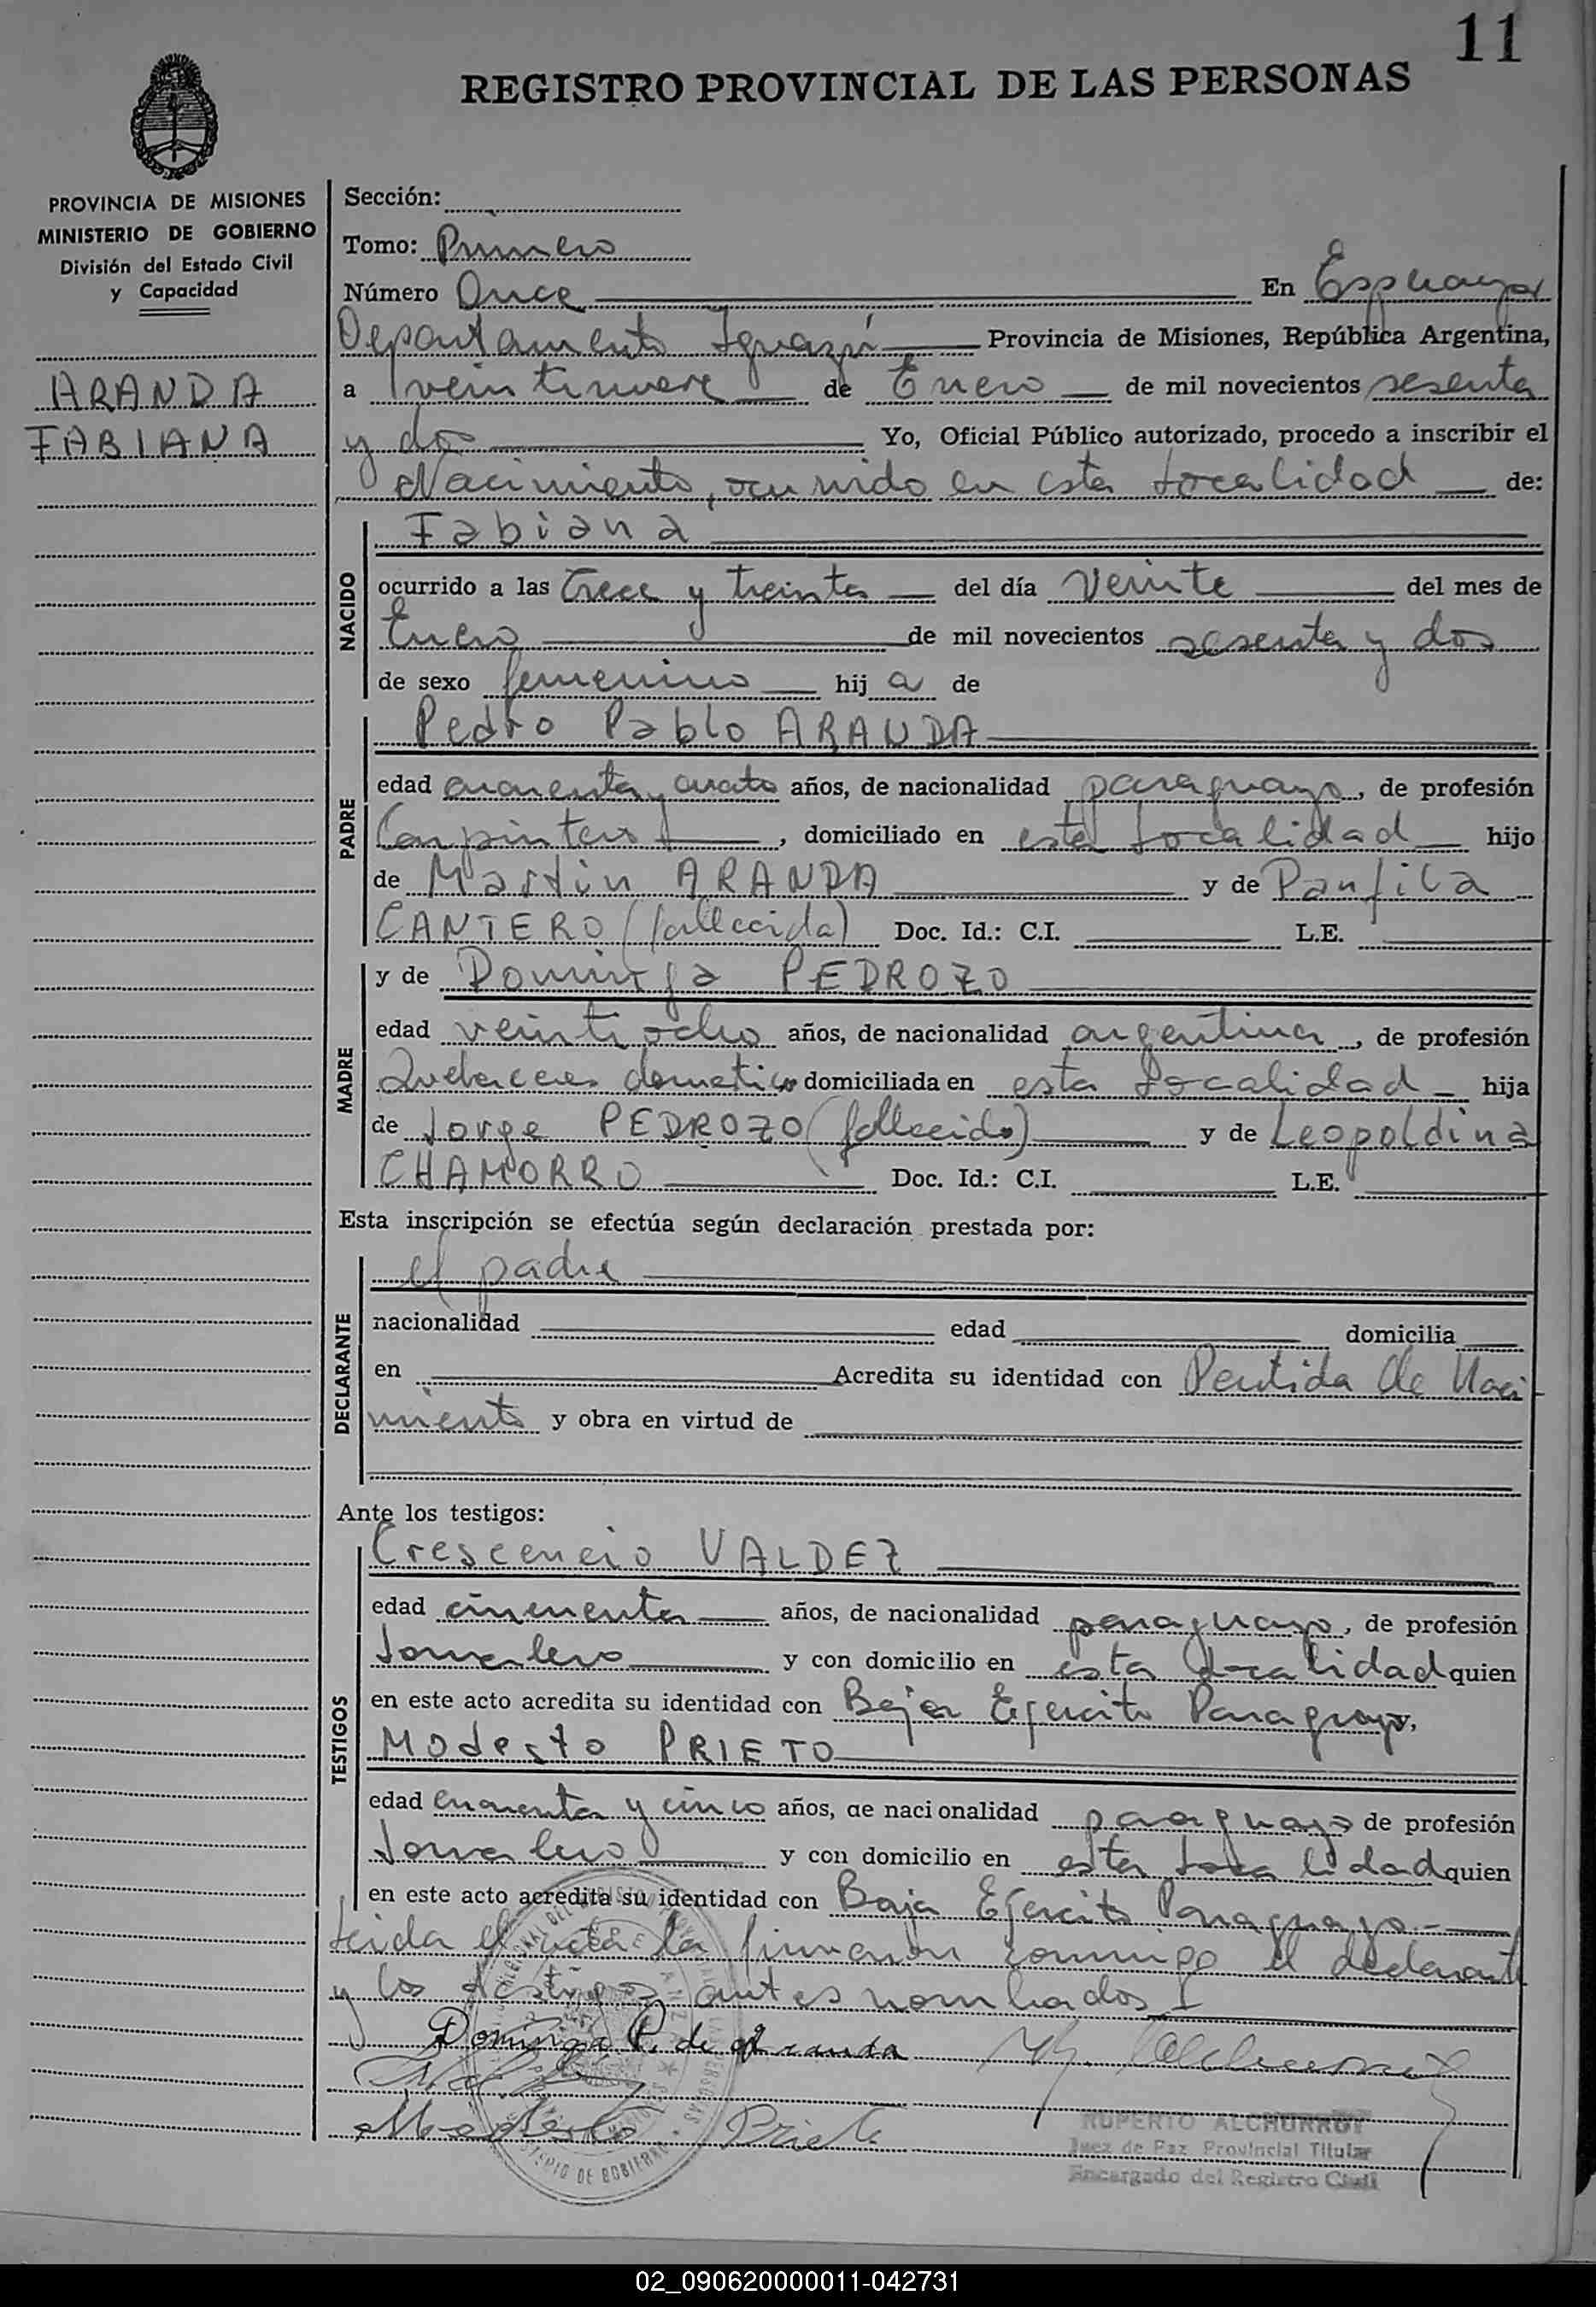 11
REGISTRO PROVINCIAL DE LAS PERSONAS
PROVINCIA DE MISIONES
MINISTERIO DE GOBIERNO
División del Estado Civil
y Capacidad
ARANDA
FABIANA
Sección:
Tomo: Primero
Número Once En Esperanza
Departamento Iguazú Provincia de Misiones, República Argentina,
a veintinueve de Enero de mil novecientos sesenta
y dos Yo, Oficial Público autorizado, procedo a inscribir el
Nacimiento, ocurrido en esta localidad de:
NACIDO
Fabiana
ocurrido a las trece y treinta del día Veinte del mes de
Enero de mil novecientos sesenta y dos
de sexo femenino hij a de
PADRE
Pedro Pablo ARANDA
edad cuarenta y cuatro años, de nacionalidad paraguayo, de profesión
Carpintero, domiciliado en esta localidad hijo
de Martin ARANDA y de Panfila
CANTERO (fallecida) Doc. Id.: C.I. L.E.
MADRE
y de Dominga PEDROZO
edad veintiocho años, de nacionalidad argentina, de profesión
Quehaceres domestico domiciliada en esta localidad hija
de Jorge PEDROZO (fallecido) y de Leopoldina
CHAMORRO Doc. Id.: C.I. L.E.
Esta inscripción se efectúa según declaración prestada por:
DECLARANTE
el padre
nacionalidad edad domicilia
en Acredita su identidad con Partida de Naci
miento y obra en virtud de
Ante los testigos:
TESTIGOS
Crescencio VALDEZ
edad cincuenta años, de nacionalidad paraguayo, de profesión
Jornalero y con domicilio en esta localidad quien
en este acto acredita su identidad con Baja Ejercito Paraguayo,
Modesto PRIETO
edad cuarenta y cinco años, de nacionalidad paraguayo de profesión
Jornalero y con domicilio en esta localidad quien
en este acto acredita su identidad con Baja Ejercito Paraguayo.-
Leida el acta la firmaron conmigo el declarante
y los testigos antes nombrados
Dominga P. de Aranda
Modesto Prieto
RUPERTO ALCHURRUT
Juez de Paz Provincial Titular
Encargado del Registro Civil
02_090620000011-042731